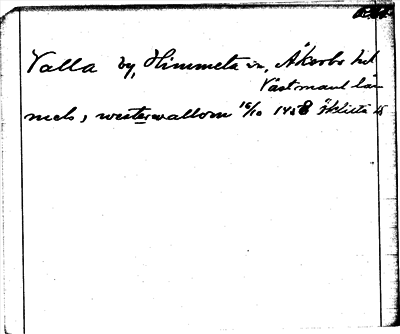 Valla by, Himmeta sn, Åkerbo hd
Västmanl län
westerwallom 16/10 1458